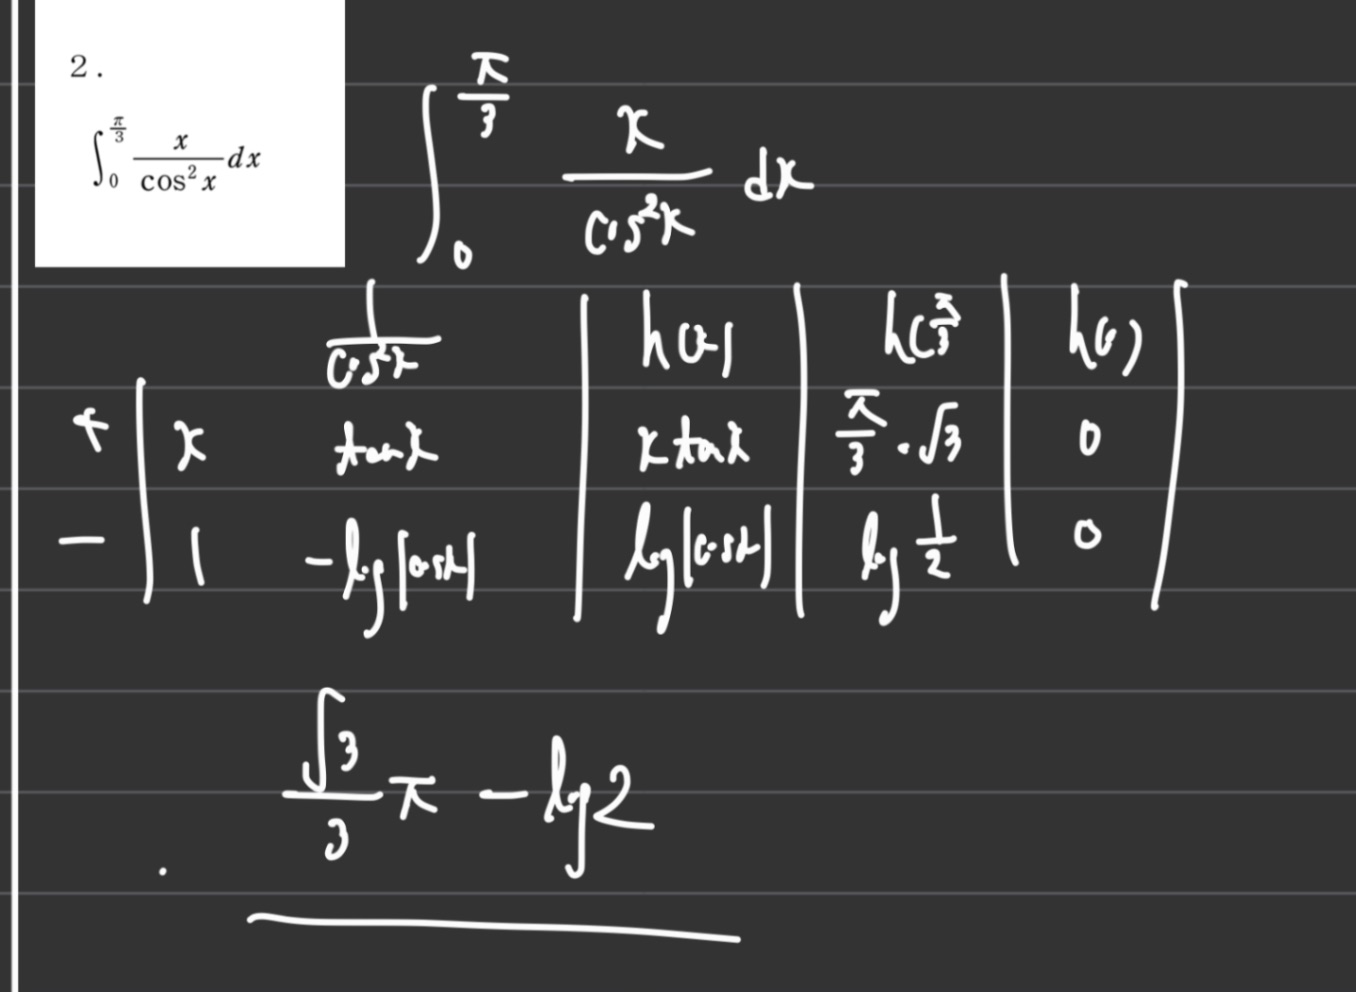 2.
∫₀^{π/3} x/cos²x dx
∫₀^{π/3} x/cos²x dx
1/cos²x | h(x) | h(π/3 | h(0) |
+ | x tanx | x tanx | π/3 · √3 | 0 |
− | 1 −log|cosx| | log|cosx| | log 1/2 | 0 |
√3/3 π − log2